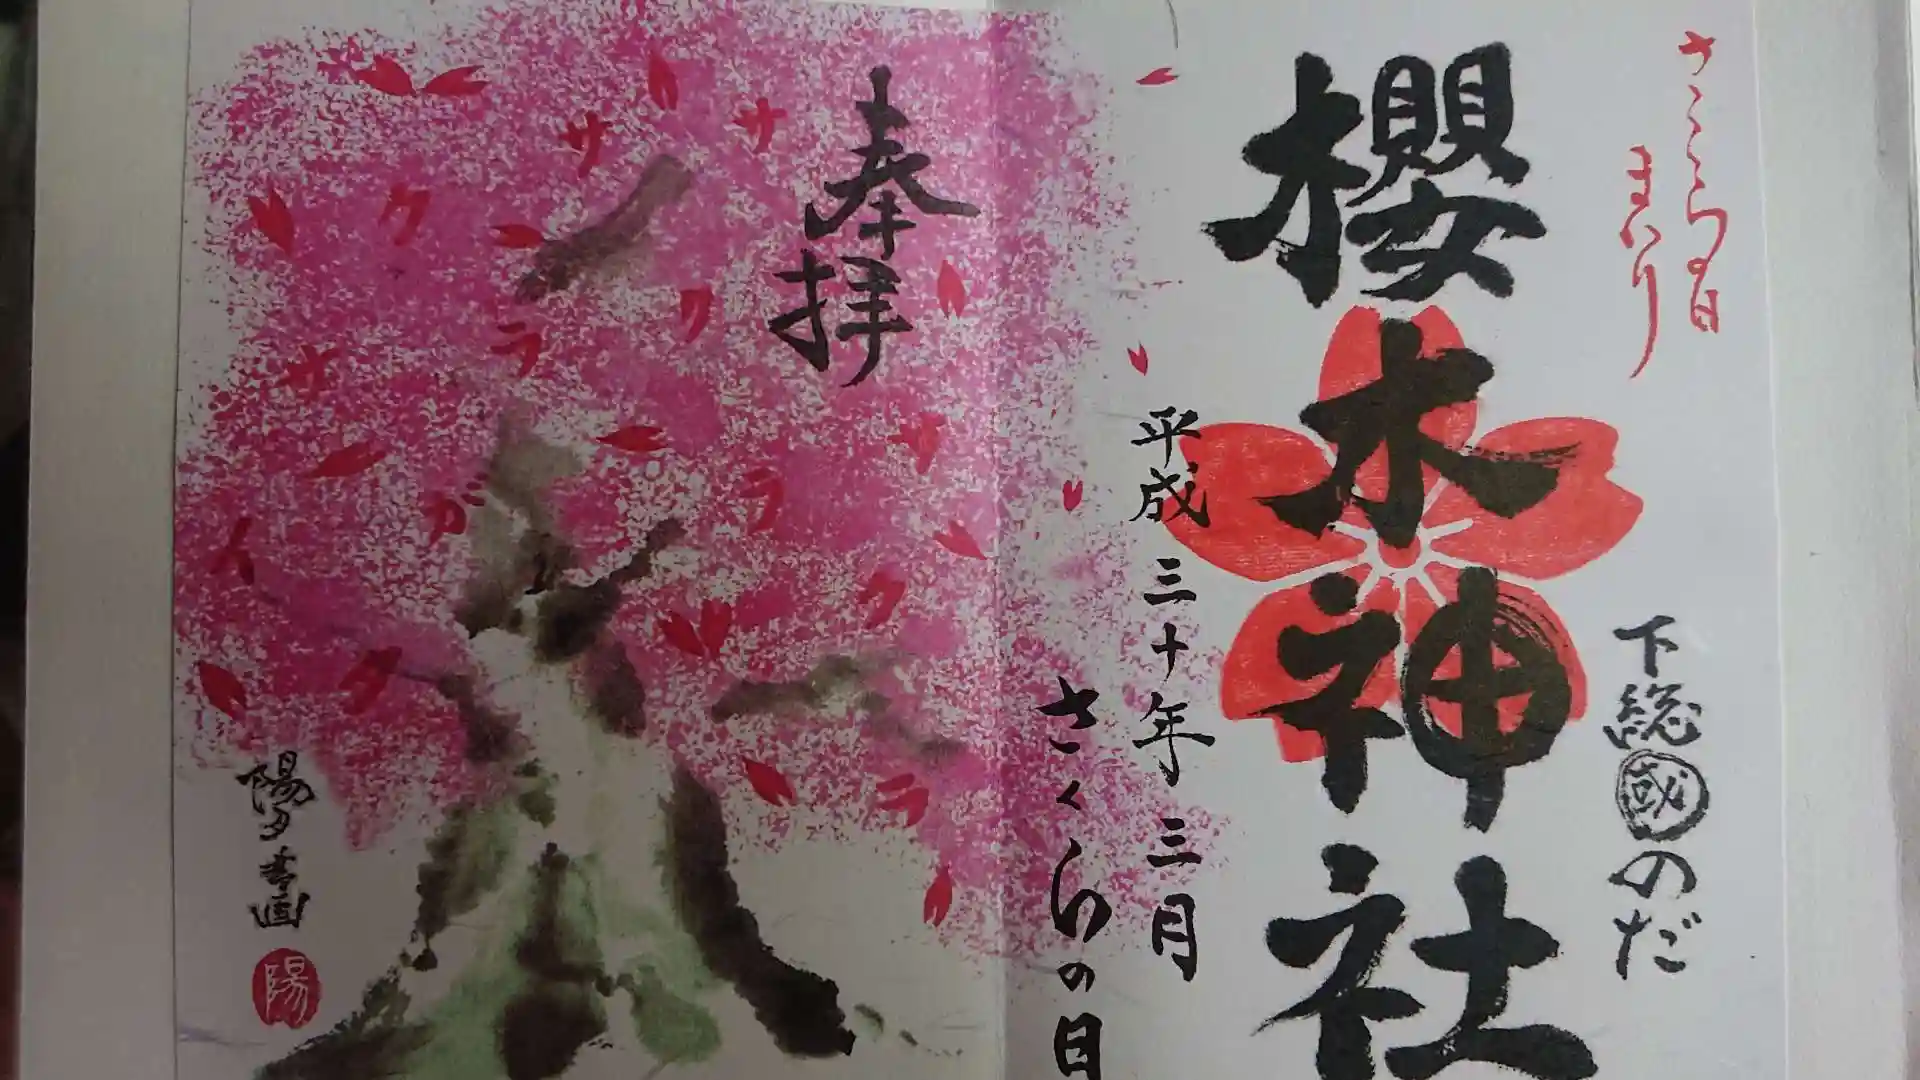 さくらの日
まいり
櫻木神社
下総國のだ
平成三十年三月
さくらの日
奉拝
サ
ク
ラ
ク
ラ
サ
ク
ラ
サ
ガ
陽